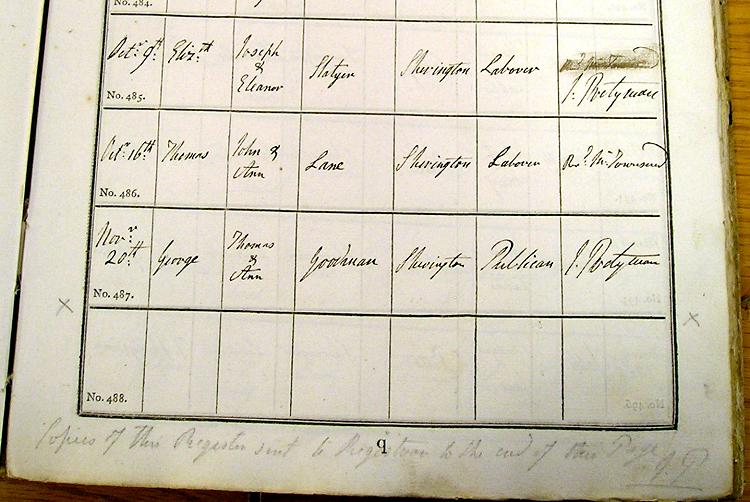 No. 484.
Octr. 9th Elizth Joseph & Eleanor Slatyer Sherington Labourer
No. 485. J. Pretyman
Octr. 16th Thomas John & Ann Lane Sherington Labourer Revd. Mr. Townsend
No. 486.
Novr. 20th George Thomas & Ann Goodman Sherington Publican J. Pretyman
No. 487.
No. 488.
q
Copies of this Register sent to Registrar to the end of this Page J.P.